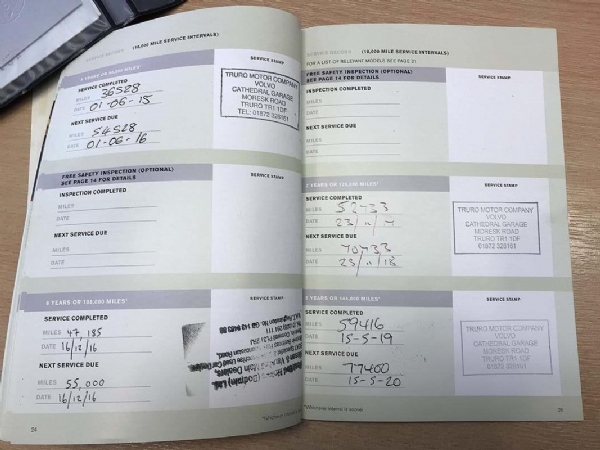 SERVICE RECORD (18,000 MILE SERVICE INTERVALS)
SERVICE STAMP
SERVICE COMPLETED
MILES 36528
DATE 01-06-15
NEXT SERVICE DUE
MILES 54528
DATE 01-06-16
TRURO MOTOR COMPANY
VOLVO
CATHEDRAL GARAGE
MORESK ROAD
TRURO TR1 1DF
TEL: 01872 326181
FREE SAFETY INSPECTION (OPTIONAL)
SEE PAGE 14 FOR DETAILS
SERVICE STAMP
INSPECTION COMPLETED
MILES
DATE
NEXT SERVICE DUE
MILES
DATE
SERVICE STAMP
SERVICE COMPLETED
MILES 47,185
DATE 16/12/16
NEXT SERVICE DUE
MILES 55,000
DATE 16/12/16
24
SERVICE RECORD (18,000 MILE SERVICE INTERVALS)
FOR A LIST OF RELEVANT MODELS SEE PAGE 21
FREE SAFETY INSPECTION (OPTIONAL)
SEE PAGE 14 FOR DETAILS
SERVICE STAMP
INSPECTION COMPLETED
MILES
DATE
NEXT SERVICE DUE
MILES
DATE
SERVICE STAMP
SERVICE COMPLETED
MILES
DATE
NEXT SERVICE DUE
MILES
DATE
TRURO MOTOR COMPANY
VOLVO
CATHEDRAL GARAGE
MORESK ROAD
TRURO TR1 1DF
01872 326181
SERVICE STAMP
SERVICE COMPLETED
MILES 59416
DATE 15-5-19
NEXT SERVICE DUE
MILES 77400
DATE 15-5-20
TRURO MOTOR COMPANY
VOLVO
CATHEDRAL GARAGE
MORESK ROAD
TRURO TR1 1DF
01872 326181
*Whichever interval is sooner